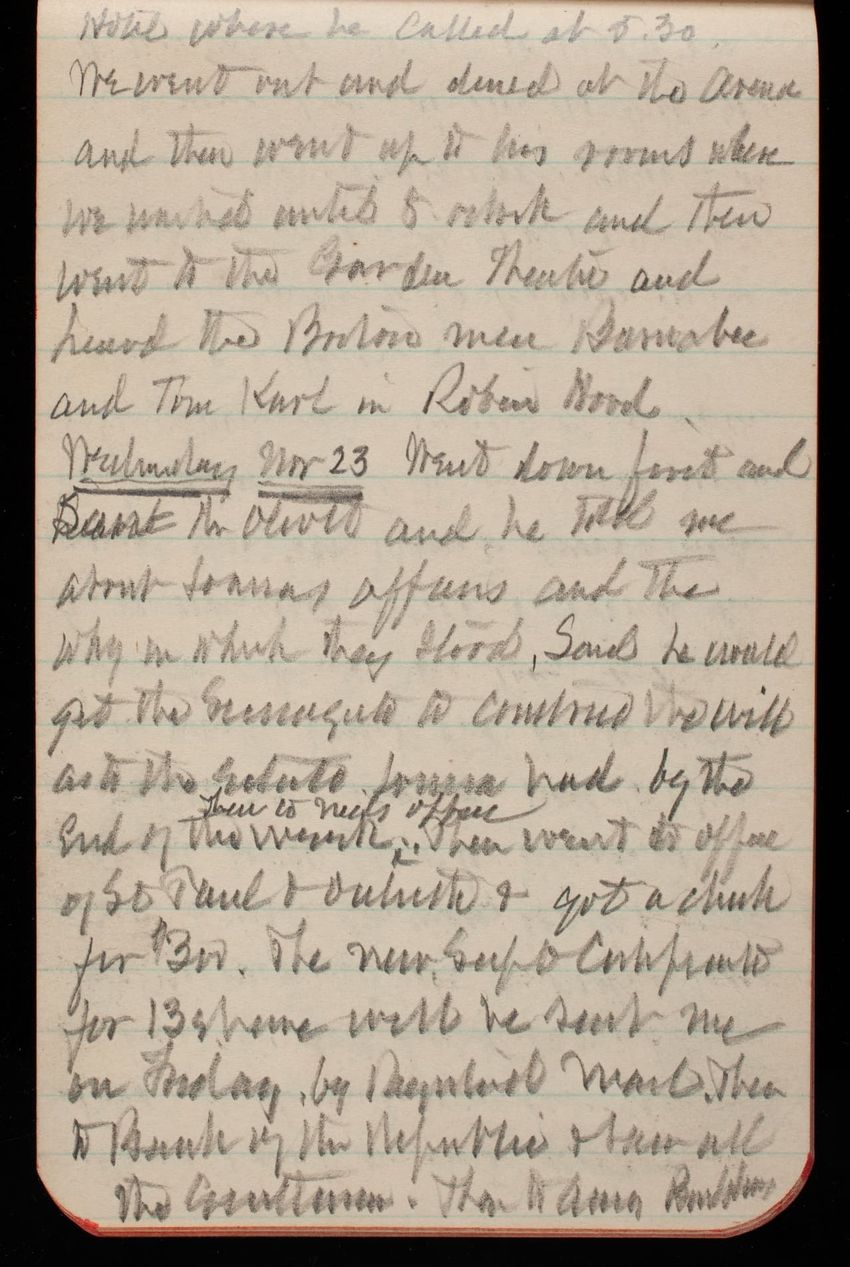 Hotel where he called at 5.30.
We went out and dined at the Arena
and then went up to his rooms where
we waited until 8 oclock and then
went to the Garden Theatre and
heard the Boston men Barnabee
and Tom Karl in Robin Hood.
Wednesday Nov 23 Went down first and
Mr Olivet and he told me
about affairs and the
way in which they stood, Said he would
get the Surrogate to construe the will
as to the Estate had by the
Then to office
End of the week. Then went to office
of St Paul & Duluth & got a check
for $300. The new Certificate
for 13 share will be sent me
on Friday by Registered Mail. Then
to Bank of the Republic & saw all
the Gentlemen. Then to